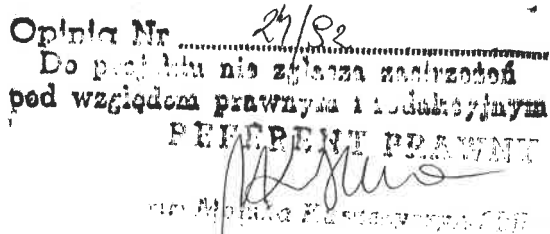 Opinia Nr 24/92
Do projektu nie zgłasza zastrzeżeń
pod względem prawnym i redakcyjnym
REFERENT PRAWNY